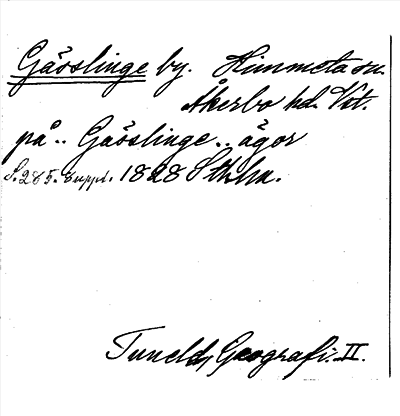 Gässlinge by. Himmeta sn.
Åkerbo hd. Vst.
på .. Gässlinge .. ägor
S. 285. suppl. 1828 Sthlm.
Tuneld, Geografi. II.